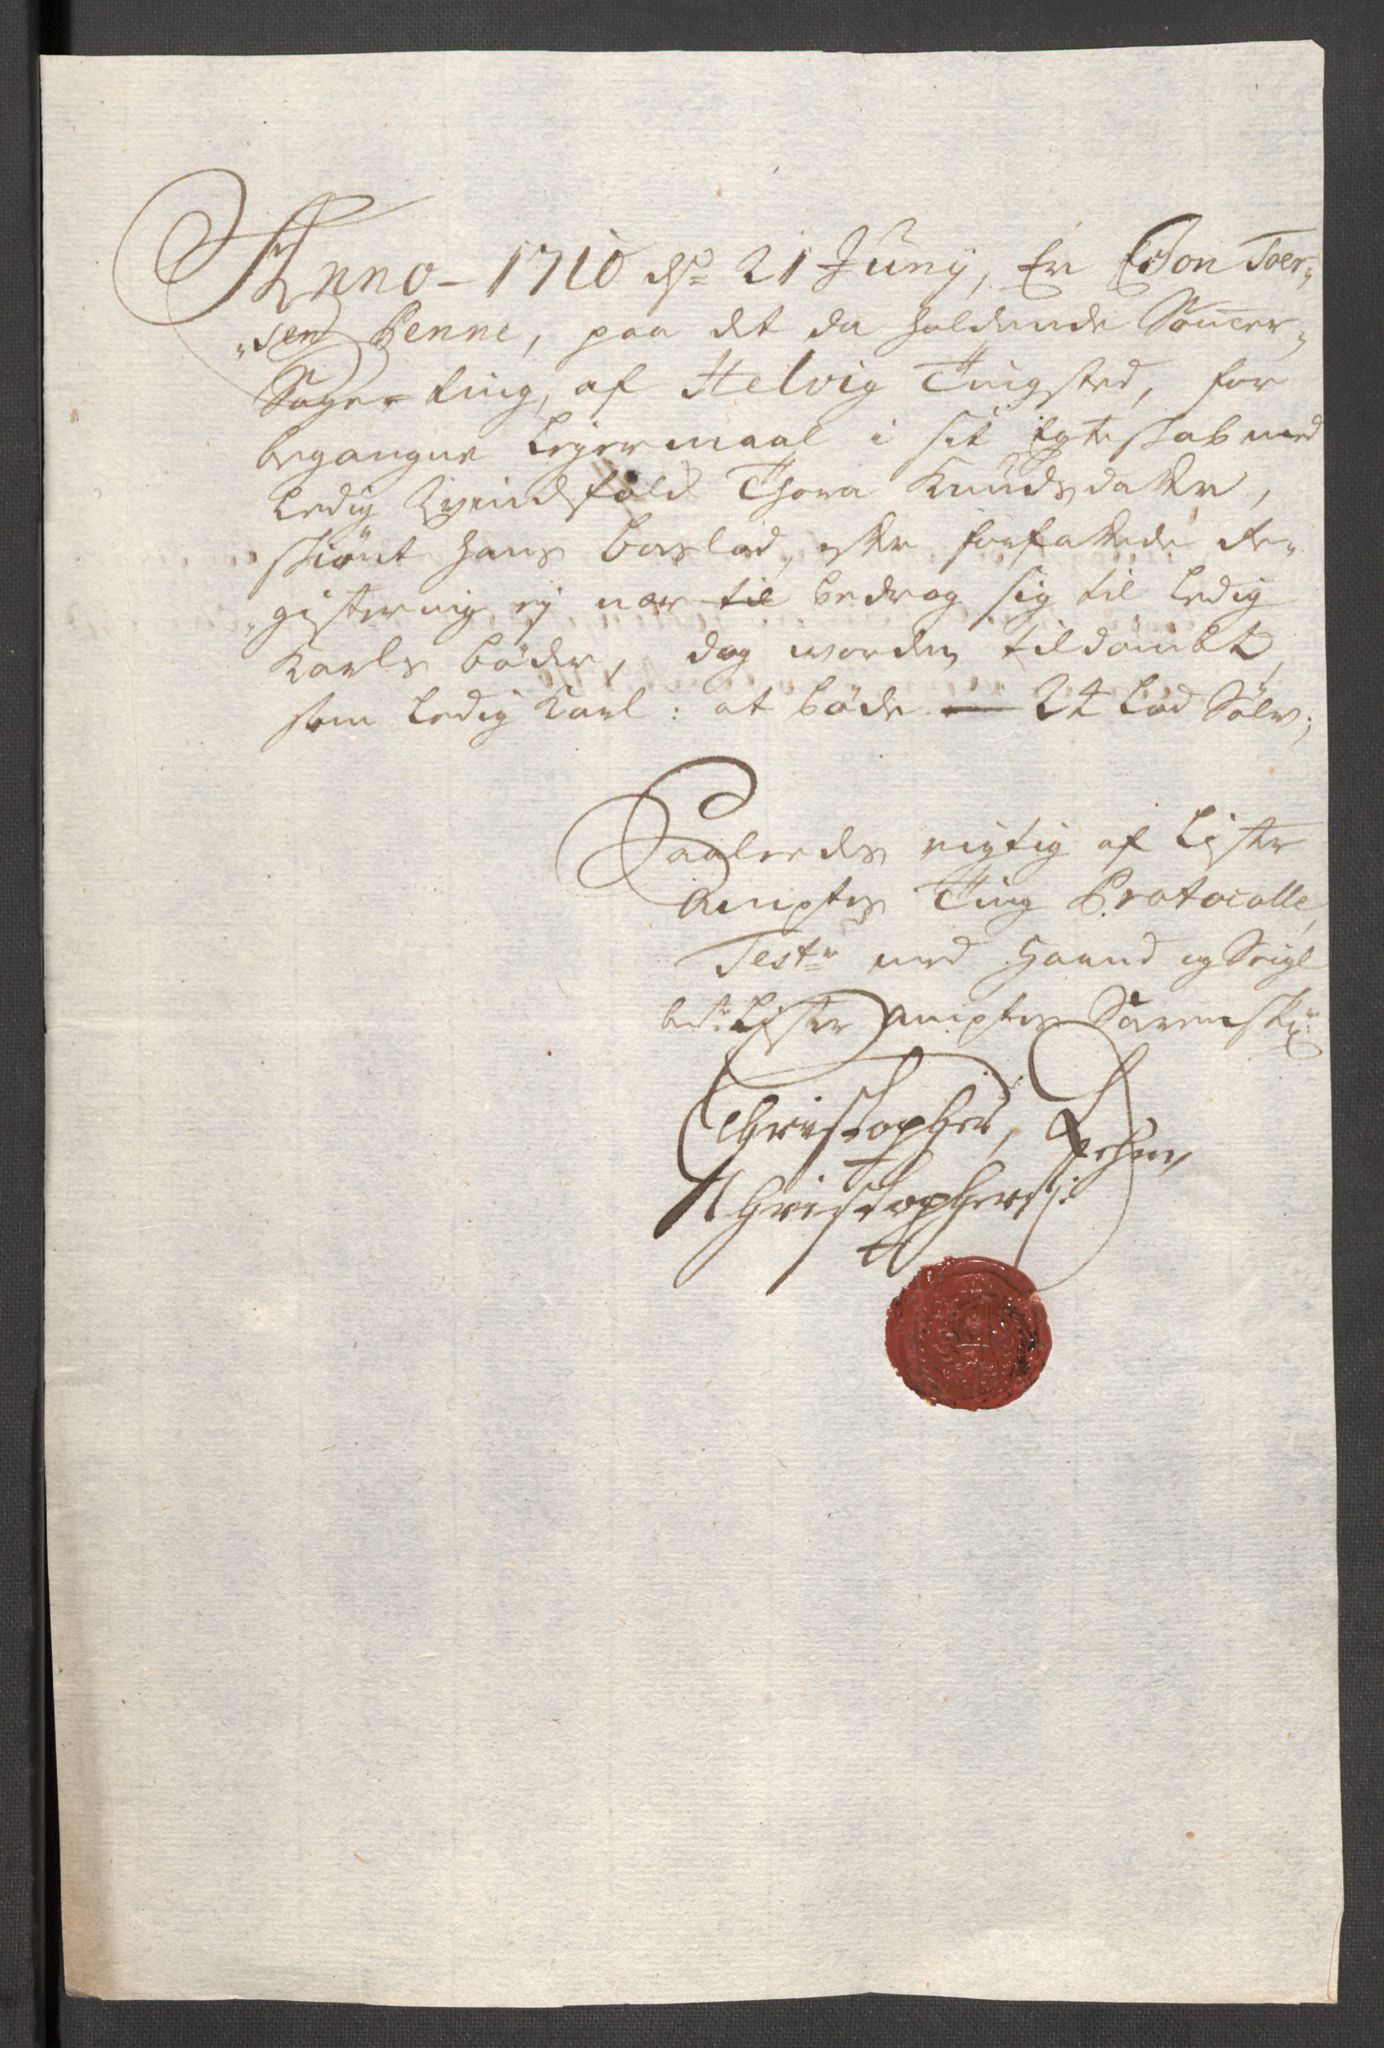 Anno 1710 dn 21 Juny, Er Tron Toer-
sen Penne, paa det da holdende Sommer-
Sage-ting, af Helvig Tingsted, for
begangne Leyermaal i sit Egteskab med
Ledig Qvindfolk Thora Knudsdatter,
skiönt hans boeslod, efter forfattede Re-
gistering ej nær til bedrog sig til Ledig
Karls böder, dog worden tildömbt,
som Ledig Karl: at böde — 24 Lod Sölv;
Saaleedes rigtig af Lister
Ampts Ting Protocolle,
Testr med Haand og Seigl
Lister Ampts Sorenskr:
Christopher, Fehm,
Christophers: